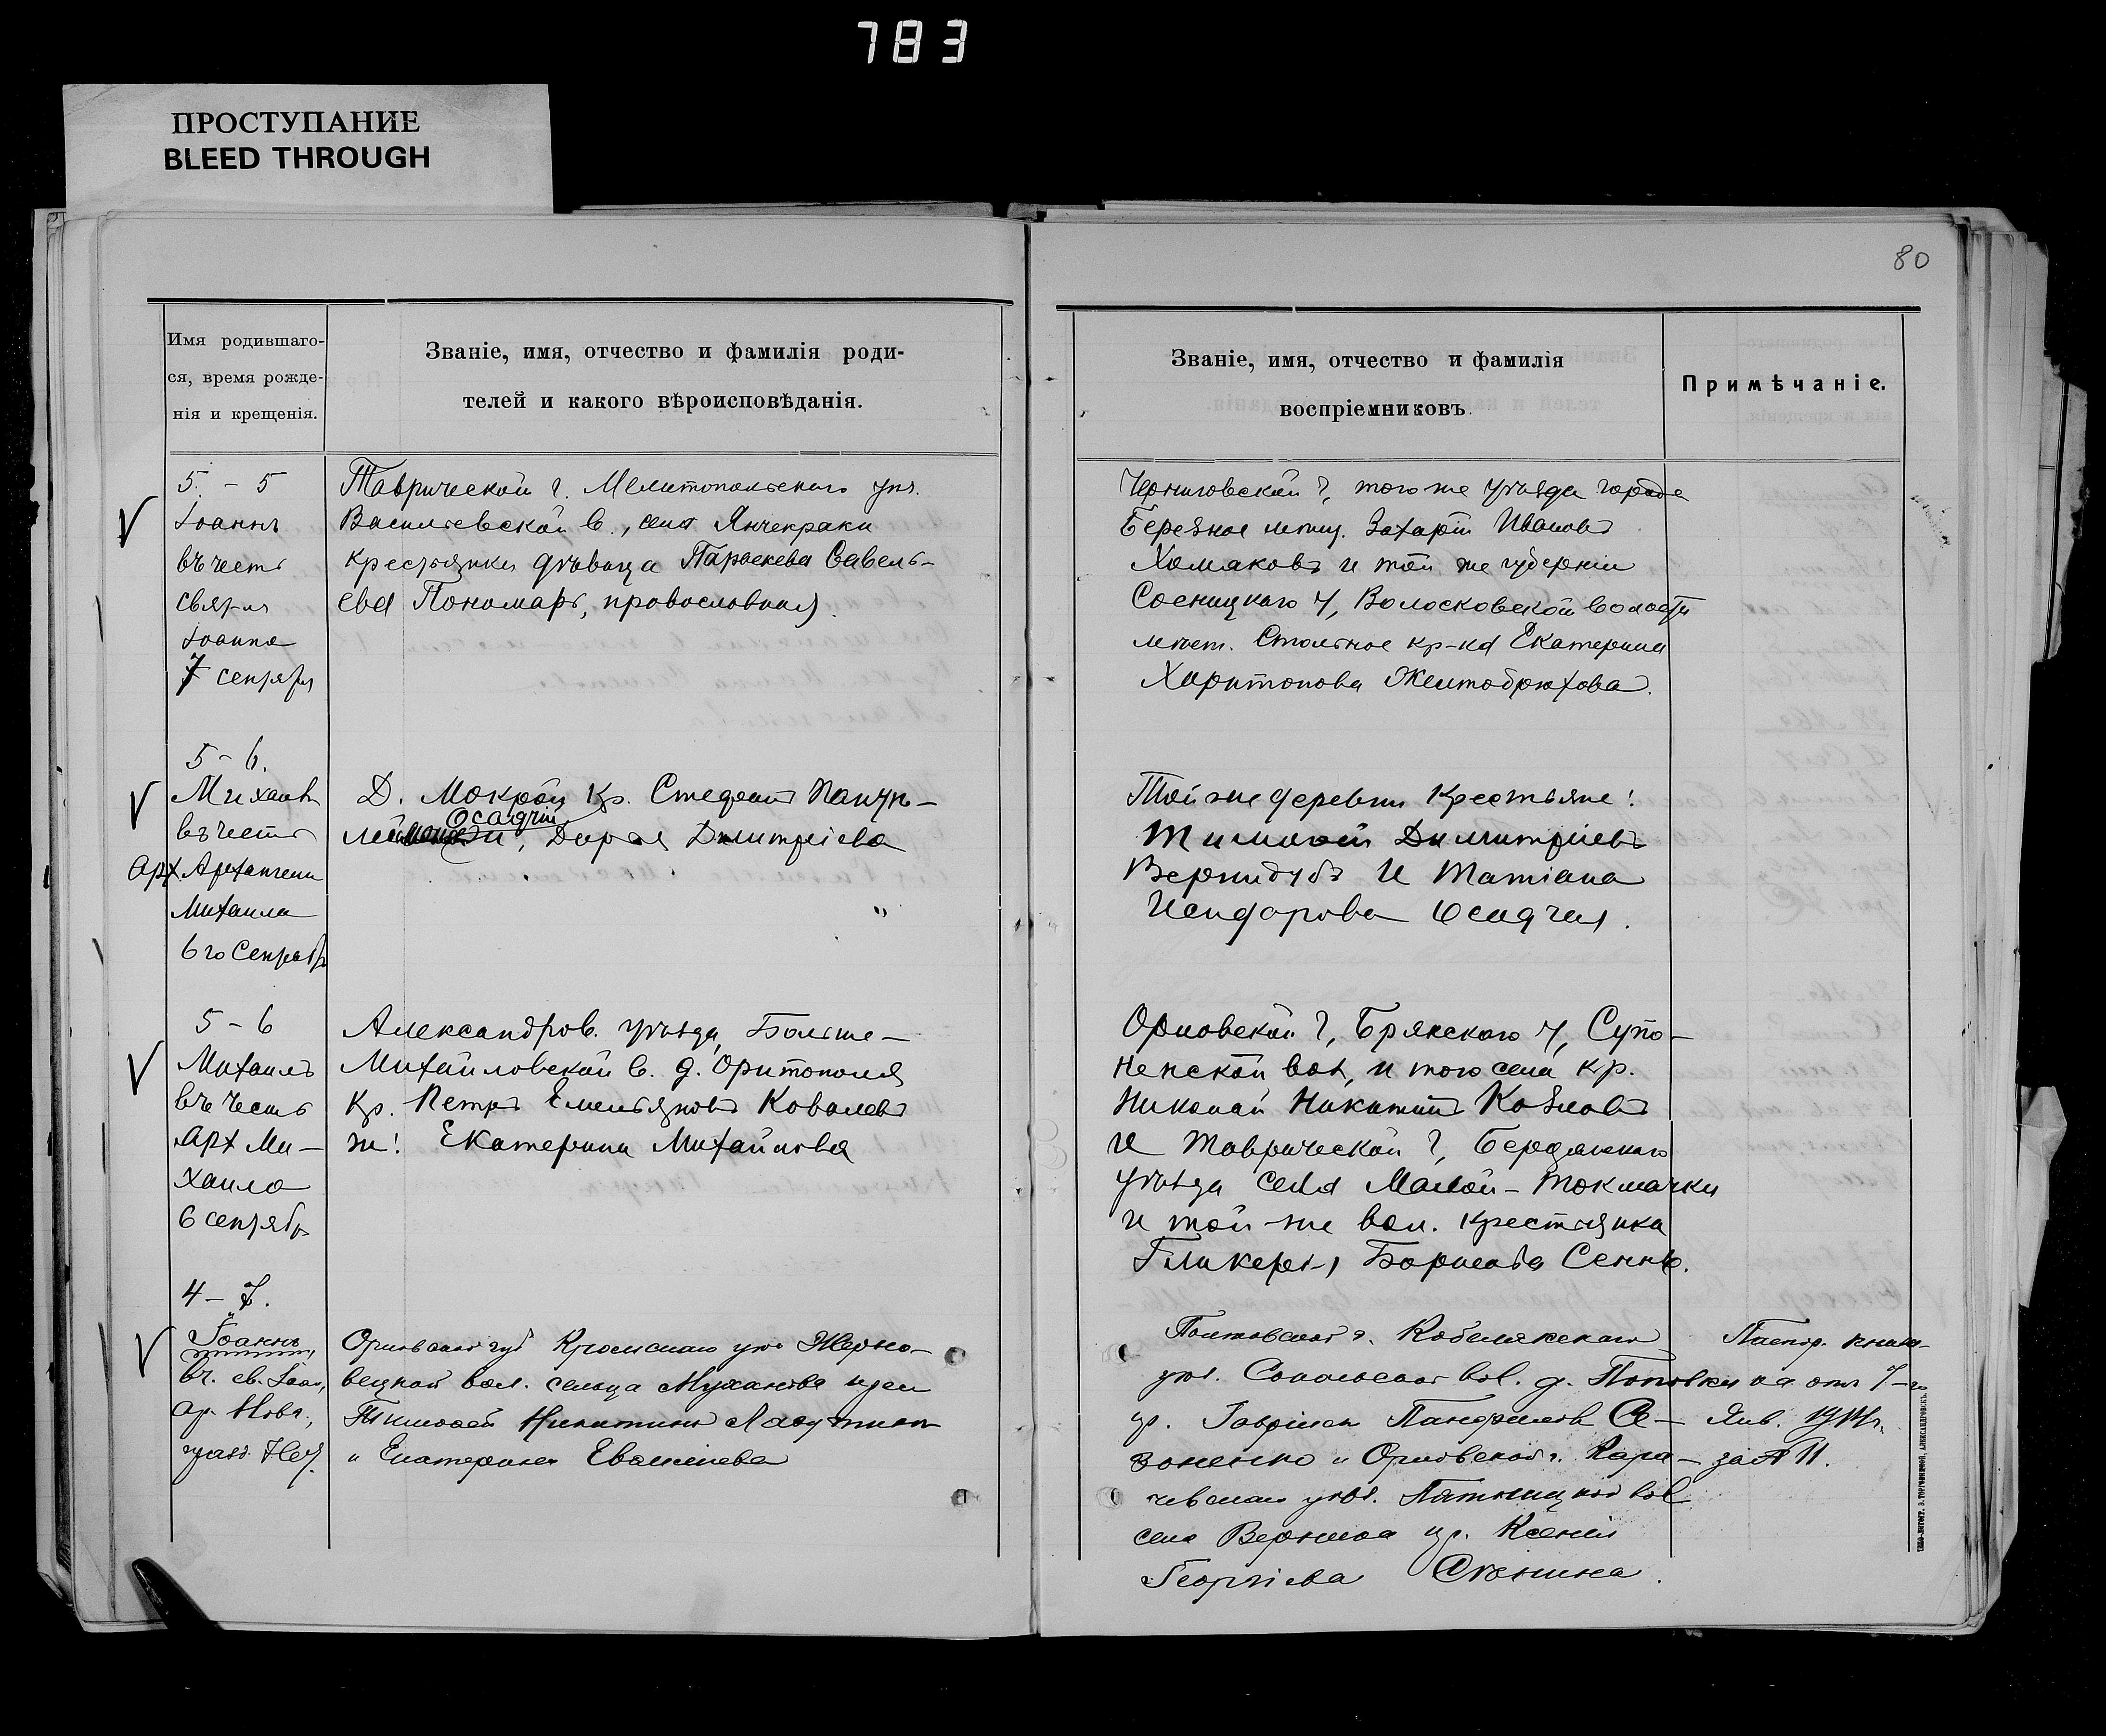 783
ПРОСТУПАНИЕ
BLEED THROUGH
80
Имя родившаго-
ся, время рожде-
нія и крещенія.
Званіе, имя, отчество и фамилія роди-
телей и какого вѣроисповѣданія.
Званіе, имя, отчество и фамилія
воспріемниковъ.
Примѣчаніе.
5 - 5
Іоаннъ
въ честь
Іоанна
7 сентября
Таврической г. Мелитопольскаго уѣз.
Васильевской в., села Янчекраки
крестьянка дѣвица Параскева Савель-
ева Пономарь, православная.
Черниговской г., того же уѣзда города
Березное мѣщ. Захарій Ивановъ
Хомяковъ и той же губерніи
Сосницкаго у, Волосковской волости
мѣст. Стольное кр-ка Екатерина
Харитонова Желтобрюхова.
5 - 6.
Михаилъ
въ честь
Арх. Архангела
Михаила
6 го Сентября
Д. Мокрой кр. Стефанъ
Осадчій
Дарья Димитріева
Той же деревни крестьяне:
Тимофей Димитріевъ
Вернидубъ и Татіана
Исидорова Осадчая.
5 - 6
Михаилъ
въ честь
Арх Ми-
хаила
6 сентябр
Александров. уѣзда, Больше-
Михайловской в. д. Оритополя
кр. Петръ Емельяновъ Ковалевъ
ж: Екатерина Михайлова
Орловской г, Брянскаго у, Супо-
невской вол, и того села кр.
Николай Никитинъ Козловъ
и Таврической г, Бердянскаго
уѣзда села Малой-Токмачки
и той-же вол. крестьянка
Гликерія Борисова
4 - 7.
Іоаннъ
въ. св. Іоан,
ар. Новг.,
Орловской губ Кромскаго уѣз
вецкой вол. сельца
Тимофей Никитинъ
и Екатерина
Полтавской г. Кобелякскаго
уѣз. Сокольской вол. д. Поповки
кр. Гавріилъ Панфиловъ
и Орловской г. Кара-
чевскаго уѣз. Пятницкой вол
села кр. Ксенія
Георгіева
Паспор. книж-
ка отъ 7-го
Янв.
за № 11.